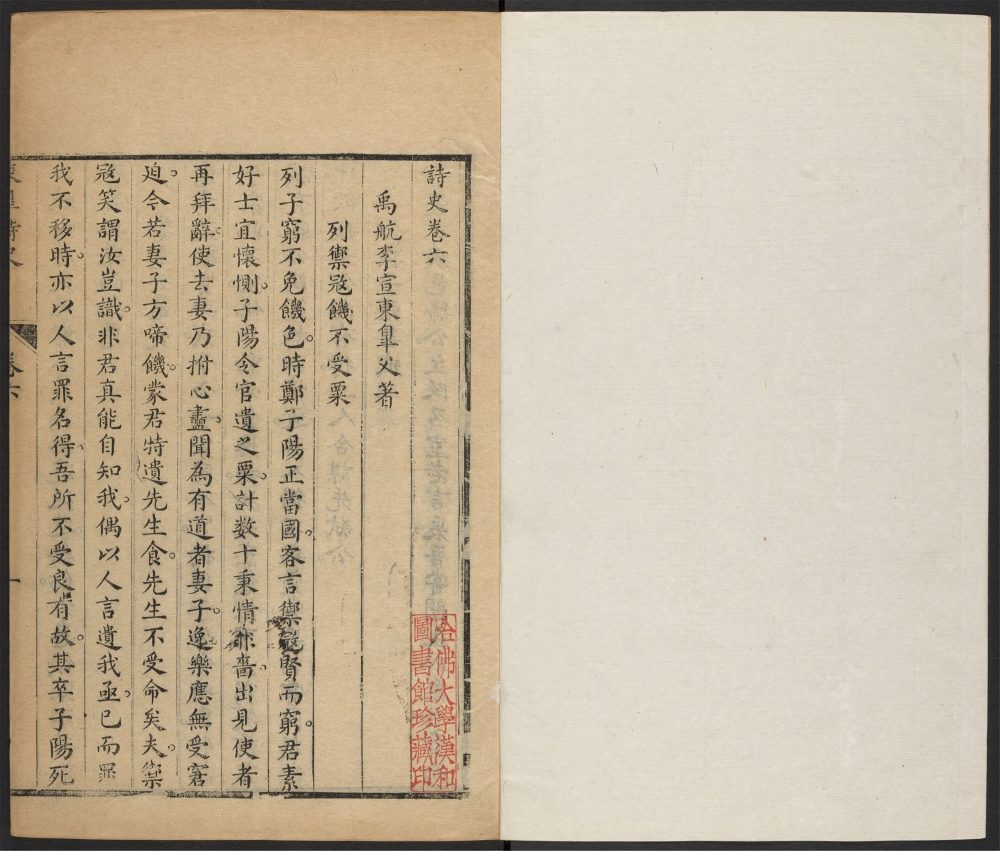 詩史卷六
禹航李宣東臯父著
列禦寇饑不受粟
列子窮不免饑色。時鄭子陽正當國。客言禦寇賢而窮。君素
好士宜懷惻。子陽令官遺之粟。計數十秉情非嗇。出見使者
再拜辭。使去妻乃拊心衋。聞為有道者妻子。逸樂應無受窘
迫。今若妻子方啼饑。蒙君特遺先生食。先生不受命矣夫。禦
寇笑謂汝豈識。非君真能自知我。偶以人言遺我亟。已而罪
我不移時。亦以人言罪名得。吾所不受良有故。其卒子陽死
卷六
一
哈佛大學漢和
圖書館珍藏印